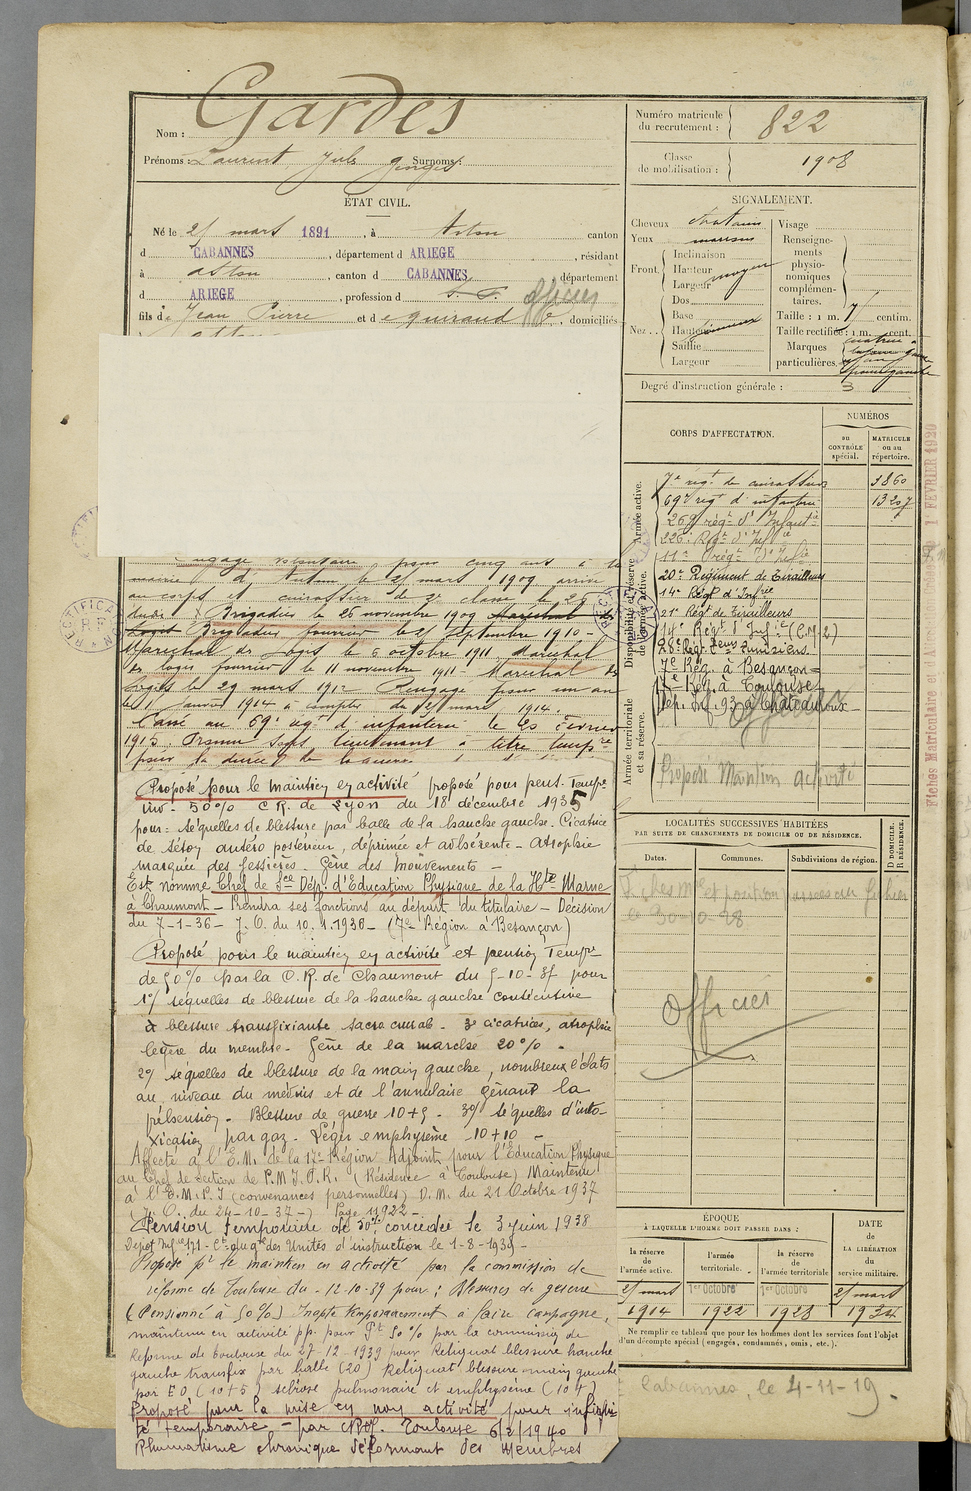 Nom : Gardes
Prénoms : Laurent Jules Georges Surnoms :
ÉTAT CIVIL.
Né le 25 mars 1891, à Aston canton
d CABANNES, département d ARIEGE, résidant
à Aston, canton d CABANNES, département
d ARIEGE, profession d S. P. officier
fils d e Jean Pierre et d e Guiraud, domiciliés
Engagé volontaire pour cinq ans à la
mairie d'Autun le 25 mars 1909 arrivé
au corps et cuirassier de 2e classe le 26
Brigadier le 26 novembre 1909 Maréchal des
Logis Brigadier fourrier le 25 septembre 1910 -
Maréchal des Logis le 6 octobre 1911 Maréchal
des logis fourrier le 11 novembre 1911 - Maréchal des
Logis le 29 mars 1912 Rengagé pour un an
le 1 janvier 1914 à compter du 25 mars 1914.
Passé au 69e régt d'infanterie le 20 février
1915. Promu Sous lieutenant à titre tempre
pour la durée de la guerre
Proposé pour le maintien en activité proposé pour pens. Tempre
inv. 50% C.R. de Lyon du 18 décembre 1935
pour : séquelles de blessure par balle de la hanche gauche. Cicatrice
de séton antéro postérieur, déprimée et adhérente - atrophie
marquée des fessières. Gêne des mouvements -
Est nommé Chef de Sce Dép. d'Education Physique de la Hte Marne
à Chaumont - Prendra ses fonctions au départ du titulaire - Décision
du 7-1-36 - J.O. du 10.1.1936 - (7e Région à Besançon)
Proposé pour le maintien en activité et pension Tempre
de 50% par la C.R. de Chaumont du 5-10-37 pour
1°/ séquelles de blessure de la hanche gauche consécutive
à blessure transfixiante - 3 cicatrices, atrophie
légère du membre - Gêne de la marche 20% -
2°/ séquelles de blessure de la main gauche, nombreux éclats
au niveau du médius et de l'annulaire gênant la
préhension - Blessure de guerre 10+5 - 3°/ séquelles d'into-
xication par gaz. Léger emphysème - 10+10 -
Affecté à l'E.M. de la 17e Région Adjoint pour l'Education Physique
au Chef de Section de P.M.I.O.R. (Résidence à Toulouse) Maintenu
à l'E.M.P.I (convenances personnelles) D.M. du 21 Octobre 1937
(J.O. du 24-10-37-) Page 11922 -
Pension temporaire de 50% concédée le 3 juin 1938
Dépôt Infie 171 - Ct du gpe des Unités d'instruction le 1-8-1939 -
Proposé pr le maintien en activité par la commission de
réforme de Toulouse du 12-10-39 pour : Blessures de guerre
(Pensionné à 50%) Inapte temporairement à faire campagne,
maintenu en activité pp. pour Pt 50% par la commission de
Réforme de Toulouse du 27-12-1939 pour Reliquat blessure hanche
gauche transfix par balle (20) Reliquat blessure main gauche
par EO (10+5) sclérose pulmonaire et emphysème (10+
Proposé pour la mise en non activité pour infirmi-
té temporaire - par Toulouse 6/2/1940
Rhumatisme chronique déformant des Membres
Numéro matricule du recrutement : 822
Classe de mobilisation : 1908
SIGNALEMENT.
Cheveux châtains
Yeux marrons
Front. Inclinaison
Hauteur moyen
Largeur
Nez.. Dos
Base
Hauteur
Saillie
Largeur
Visage
Renseignements physionomiques complémentaires.
Taille : 1 m. 7 centim.
Taille rectifiée : 1 m. cent.
Marques particulières.
Degré d'instruction générale : 3
CORPS D'AFFECTATION.
NUMÉROS
au CONTRÔLE spécial.
MATRICULE ou au répertoire.
Armée active.
Disponibilité et réserve de l'armée active.
Armée territoriale et sa réserve.
7e régt de cuirassiers 3860
69e régt d'infanterie 13207
269 régt d'Infantie
226e Régt d'Infie
11e régt d'Infie
20e Régiment de Tirailleurs
14e Régt d'Infie
21e Régt de Tirailleurs
14e Régt d'Infie (C.M.2)
28e Régt Tirrs Tunisiens.
7e Rég. à Besançon -
17e Rég. à Toulouse
Dép. Inf. 93 à Chateauroux -
Officier
Proposé Maintien activité
LOCALITÉS SUCCESSIVES HABITÉES
PAR SUITE DE CHANGEMENTS DE DOMICILE OU DE RÉSIDENCE.
Dates.
Communes.
Subdivisions de région.
D DOMICILE.
R RÉSIDENCE.
Fiches Mle et position
le 30-10-28
Officier
ÉPOQUE
À LAQUELLE L'HOMME DOIT PASSER DANS :
la réserve de l'armée active.
l'armée territoriale.
la réserve de l'armée territoriale
DATE DE LA LIBÉRATION du service militaire.
25 mars 1914
1er Octobre 1922
1er Octobre 1928
25 mars 1934
Ne remplir ce tableau que pour les hommes dont les services font l'objet
d'un décompte spécial (engagés, condamnés, omis, etc.).
Cabannes, le 4-11-19.
RECTIFICATION
Fiches Matriculaire et 1er FEVRIER 1920